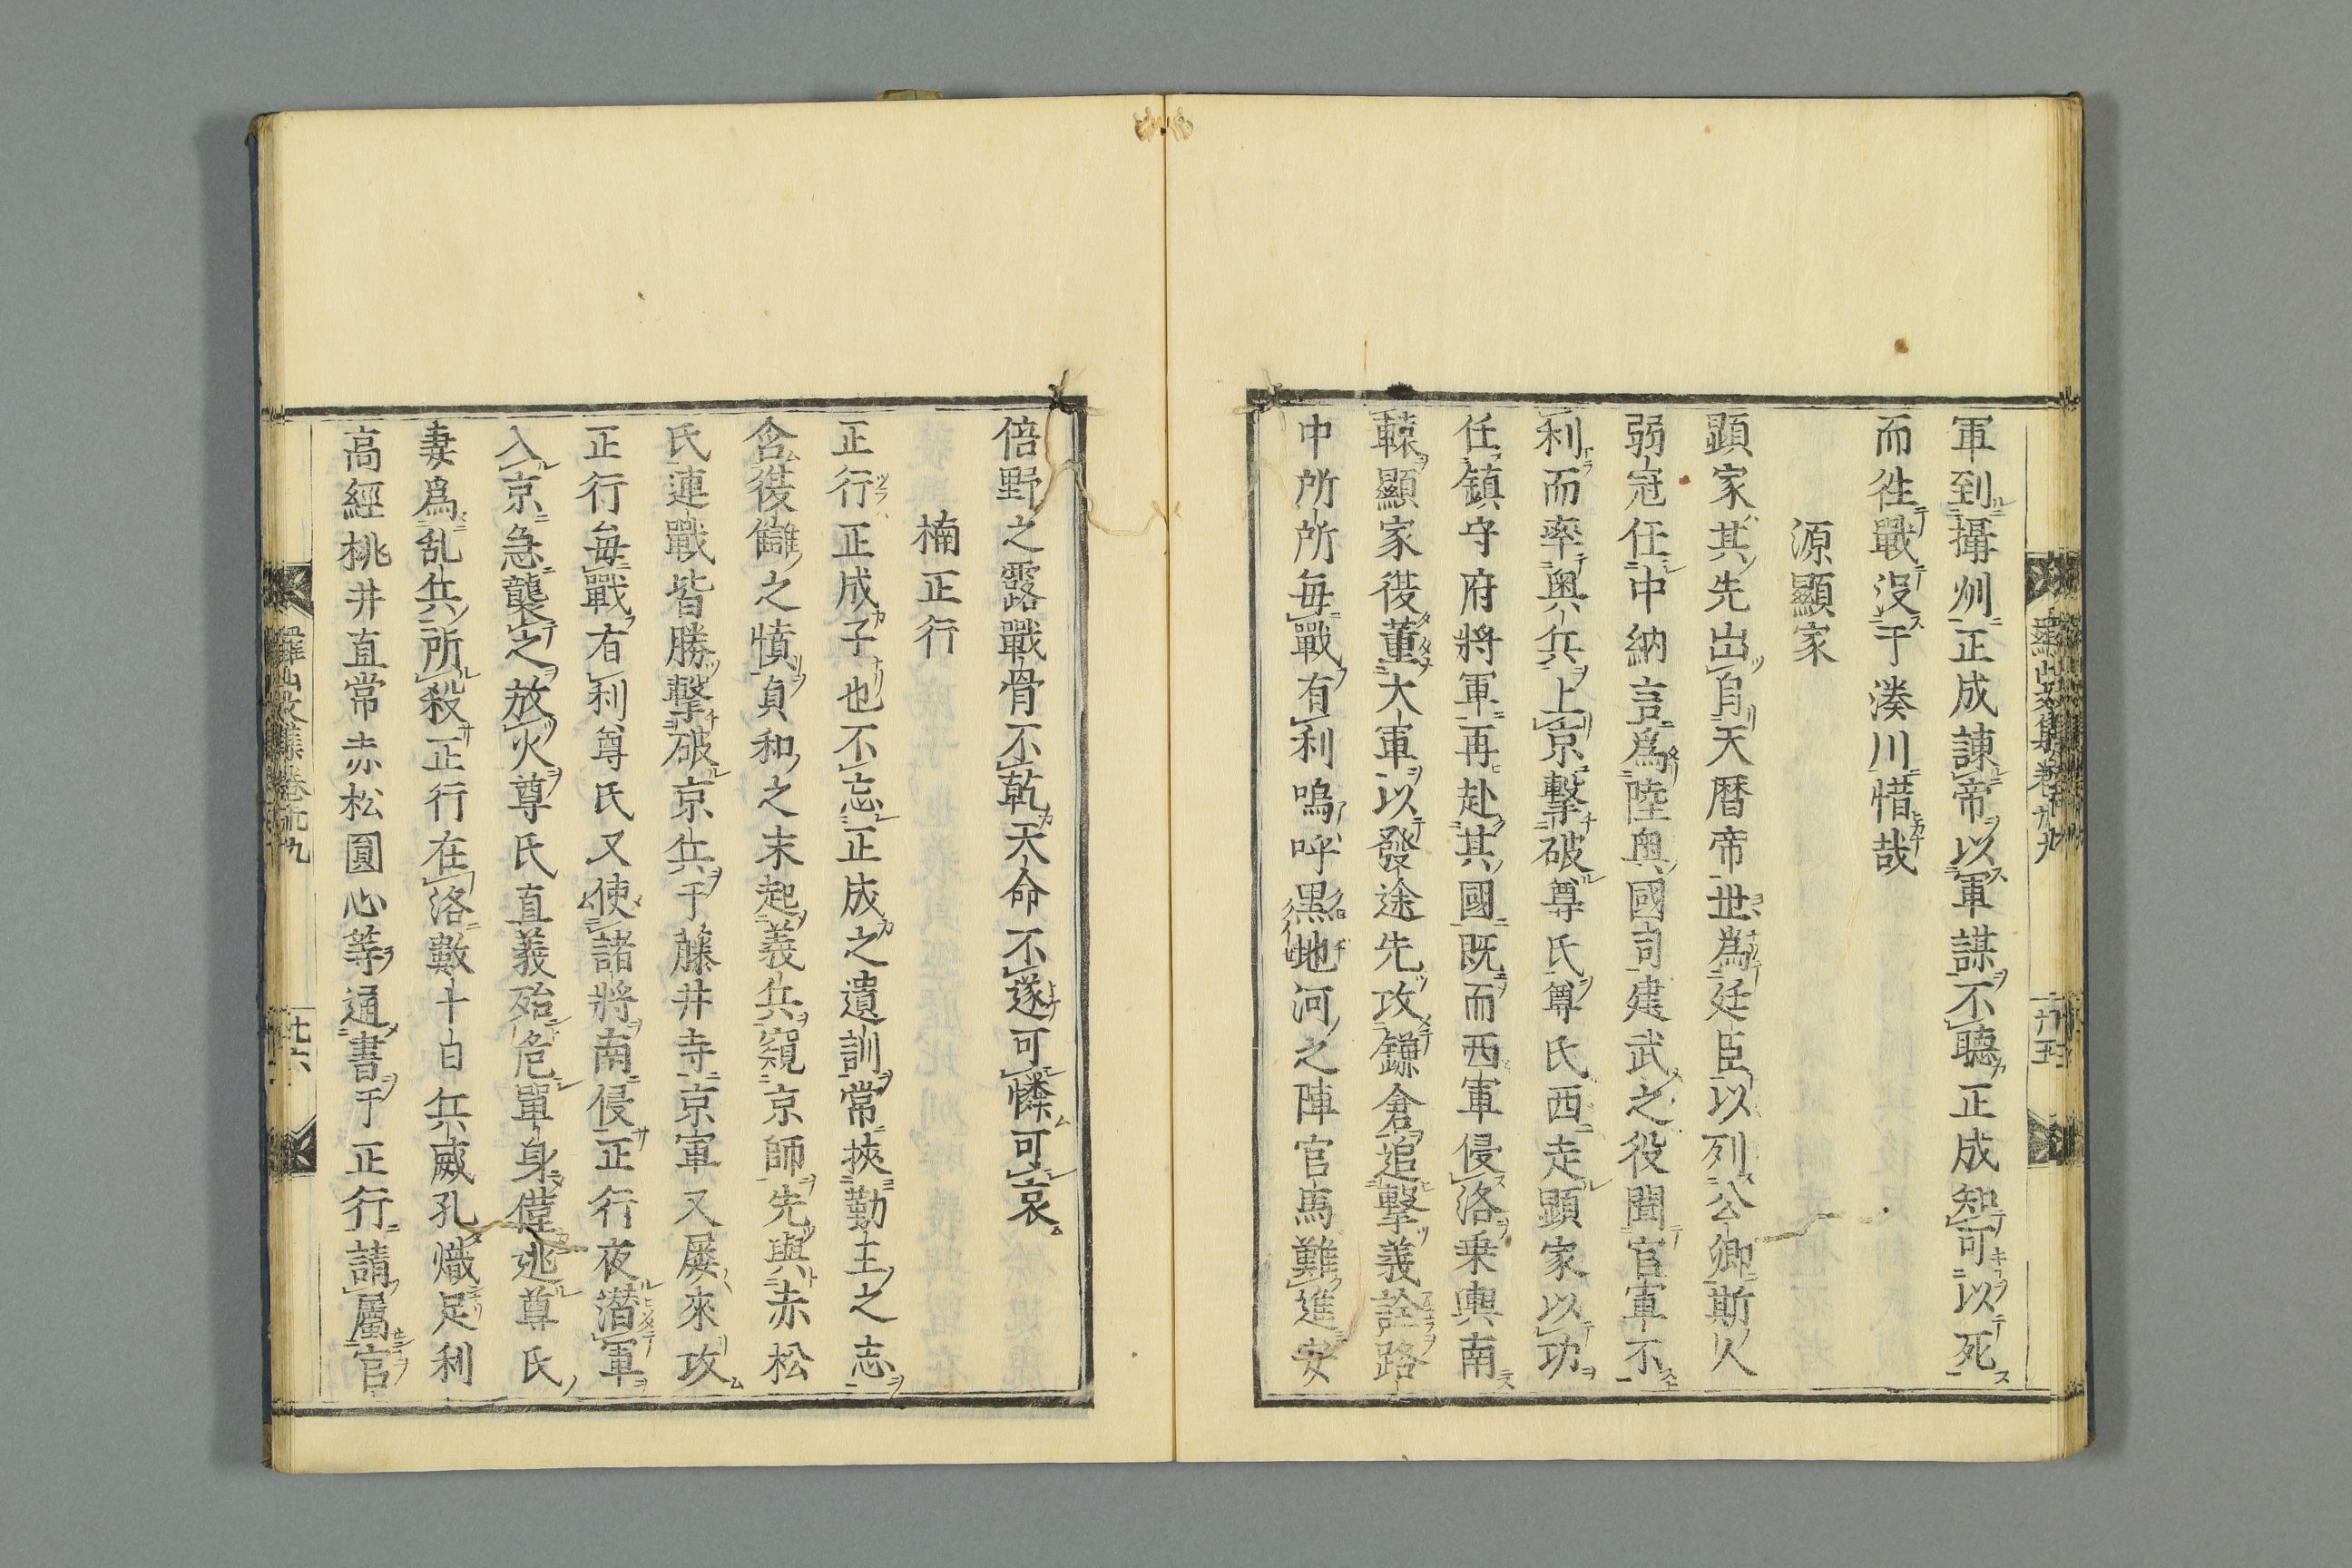 軍到攝州正成諫帝以軍謀不聽正成知可以死
而徃戰沒于湊川惜哉
源顯家
顯家其先出自天暦帝世爲廷臣以列公卿斯人
弱冠任中納言爲陸奥國司建武之役聞官軍不
利而率奥兵上京擊破尊氏尊氏西走顯家以功
任鎮守府將軍再赴其國既而西軍侵洛乗輿南
轅顯家復董大軍以發途先攻鎌倉追擊義詮路
中所所毎戰有利嗚呼黒地河之陣官馬難進安
倍野之露戰骨不乾天命不遂可憐可哀
楠正行
正行正成子也不忘正成之遺訓常挾勤王之志
含復讎之憤貞和之末起義兵窺京師先與赤松
氏連戰皆勝擊破京兵于藤井寺京軍又屡來攻
正行毎戰有利尊氏又使諸將南侵正行夜潜軍
入京急襲之放火尊氏直義殆危單身僅逃尊氏
妻爲乱兵所殺正行在洛數十日兵威孔熾足利
高經桃井直常赤松圓心等通書于正行請屬官
羅山文集卷卅九
卅五
羅山文集卷卅九
卅六